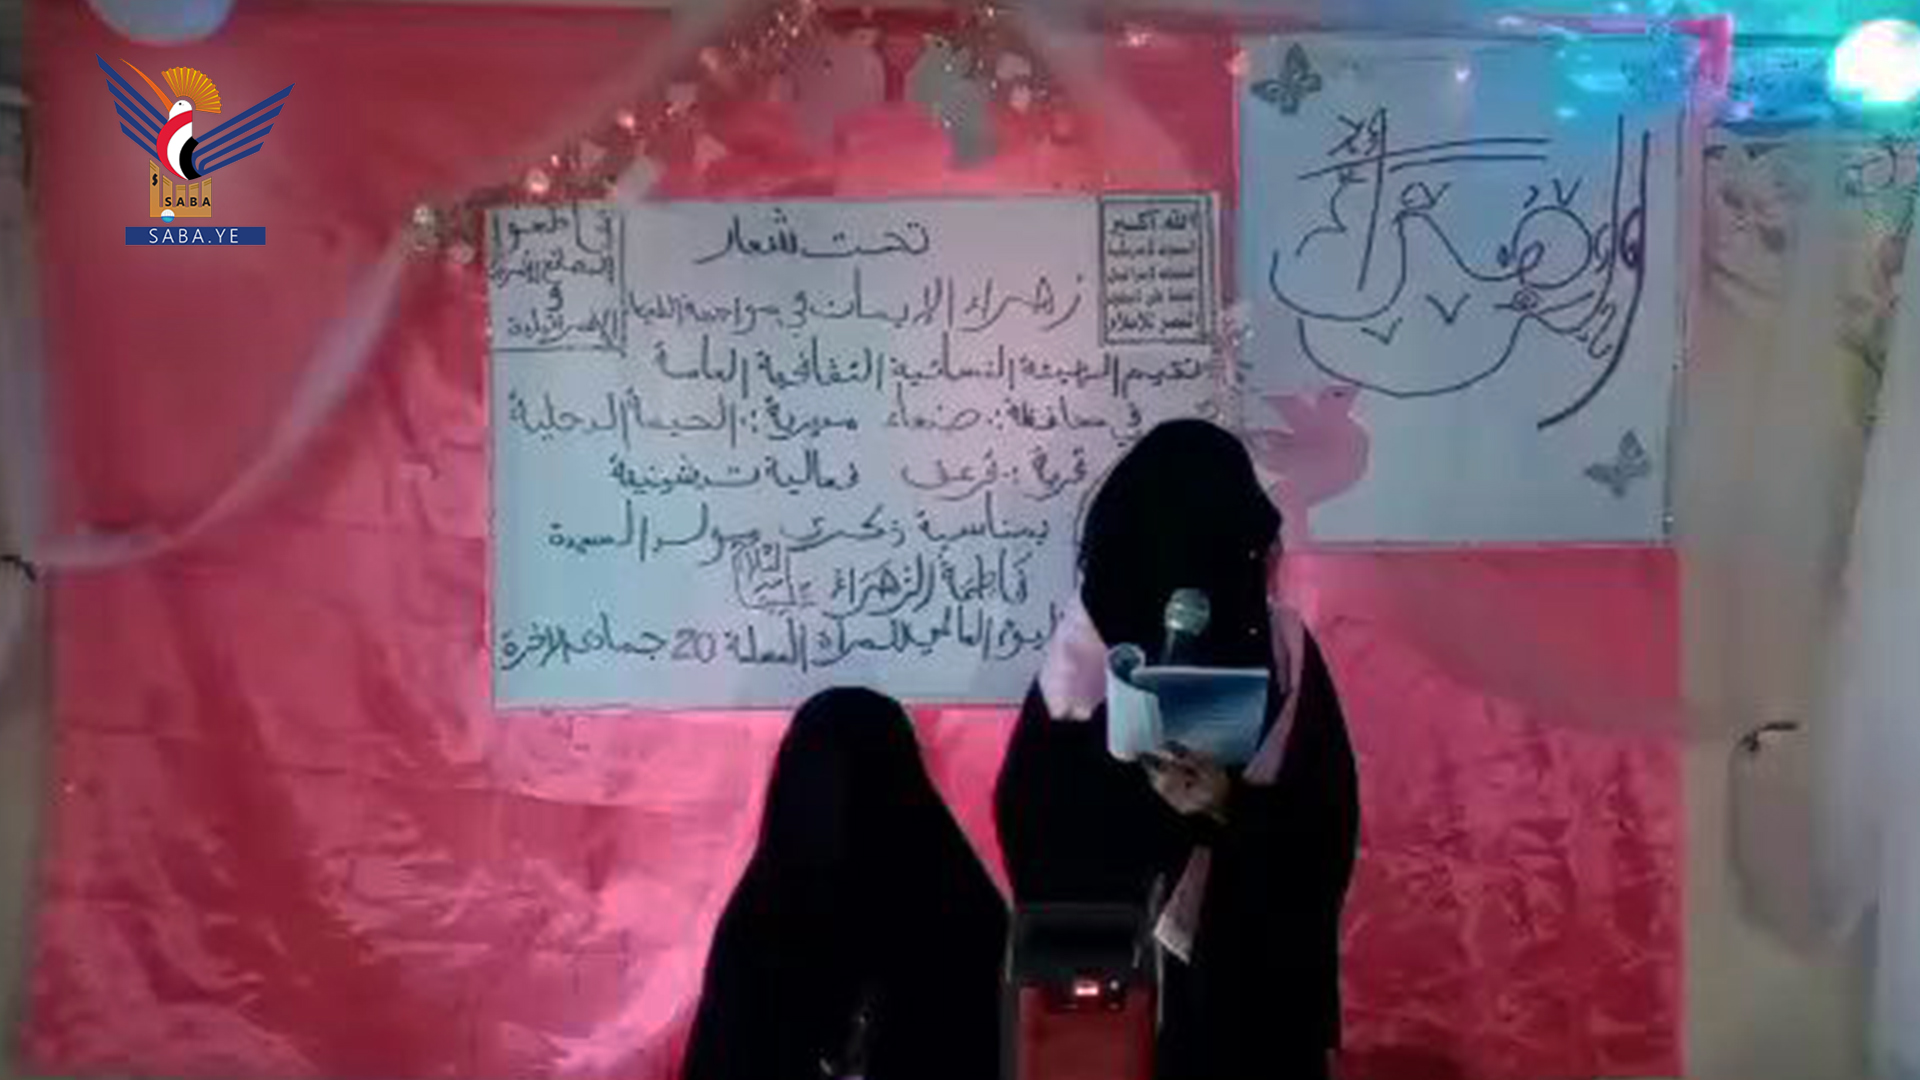 SABA
SABA.YE
قاطعوا
البضائع الأمريكية
و
الإسرائيلية
تحت شعار
الله أكبر
الموت لأمريكا
الموت لإسرائيل
اللعنة على اليهود
النصر للإسلام
زهراء الإيمان في مواجهة
تقيم الهيئة النسائية الثقافية العامة
في محافظة: صنعاء مديرية: الحيمة الدخلية
قرية: فعالية
بمناسبة ذكرى مولد السيدة
فاطمة الزهراء عليها السلام
اليوم العالمي للمرأة المسلمة 20 جمادى الآخرة